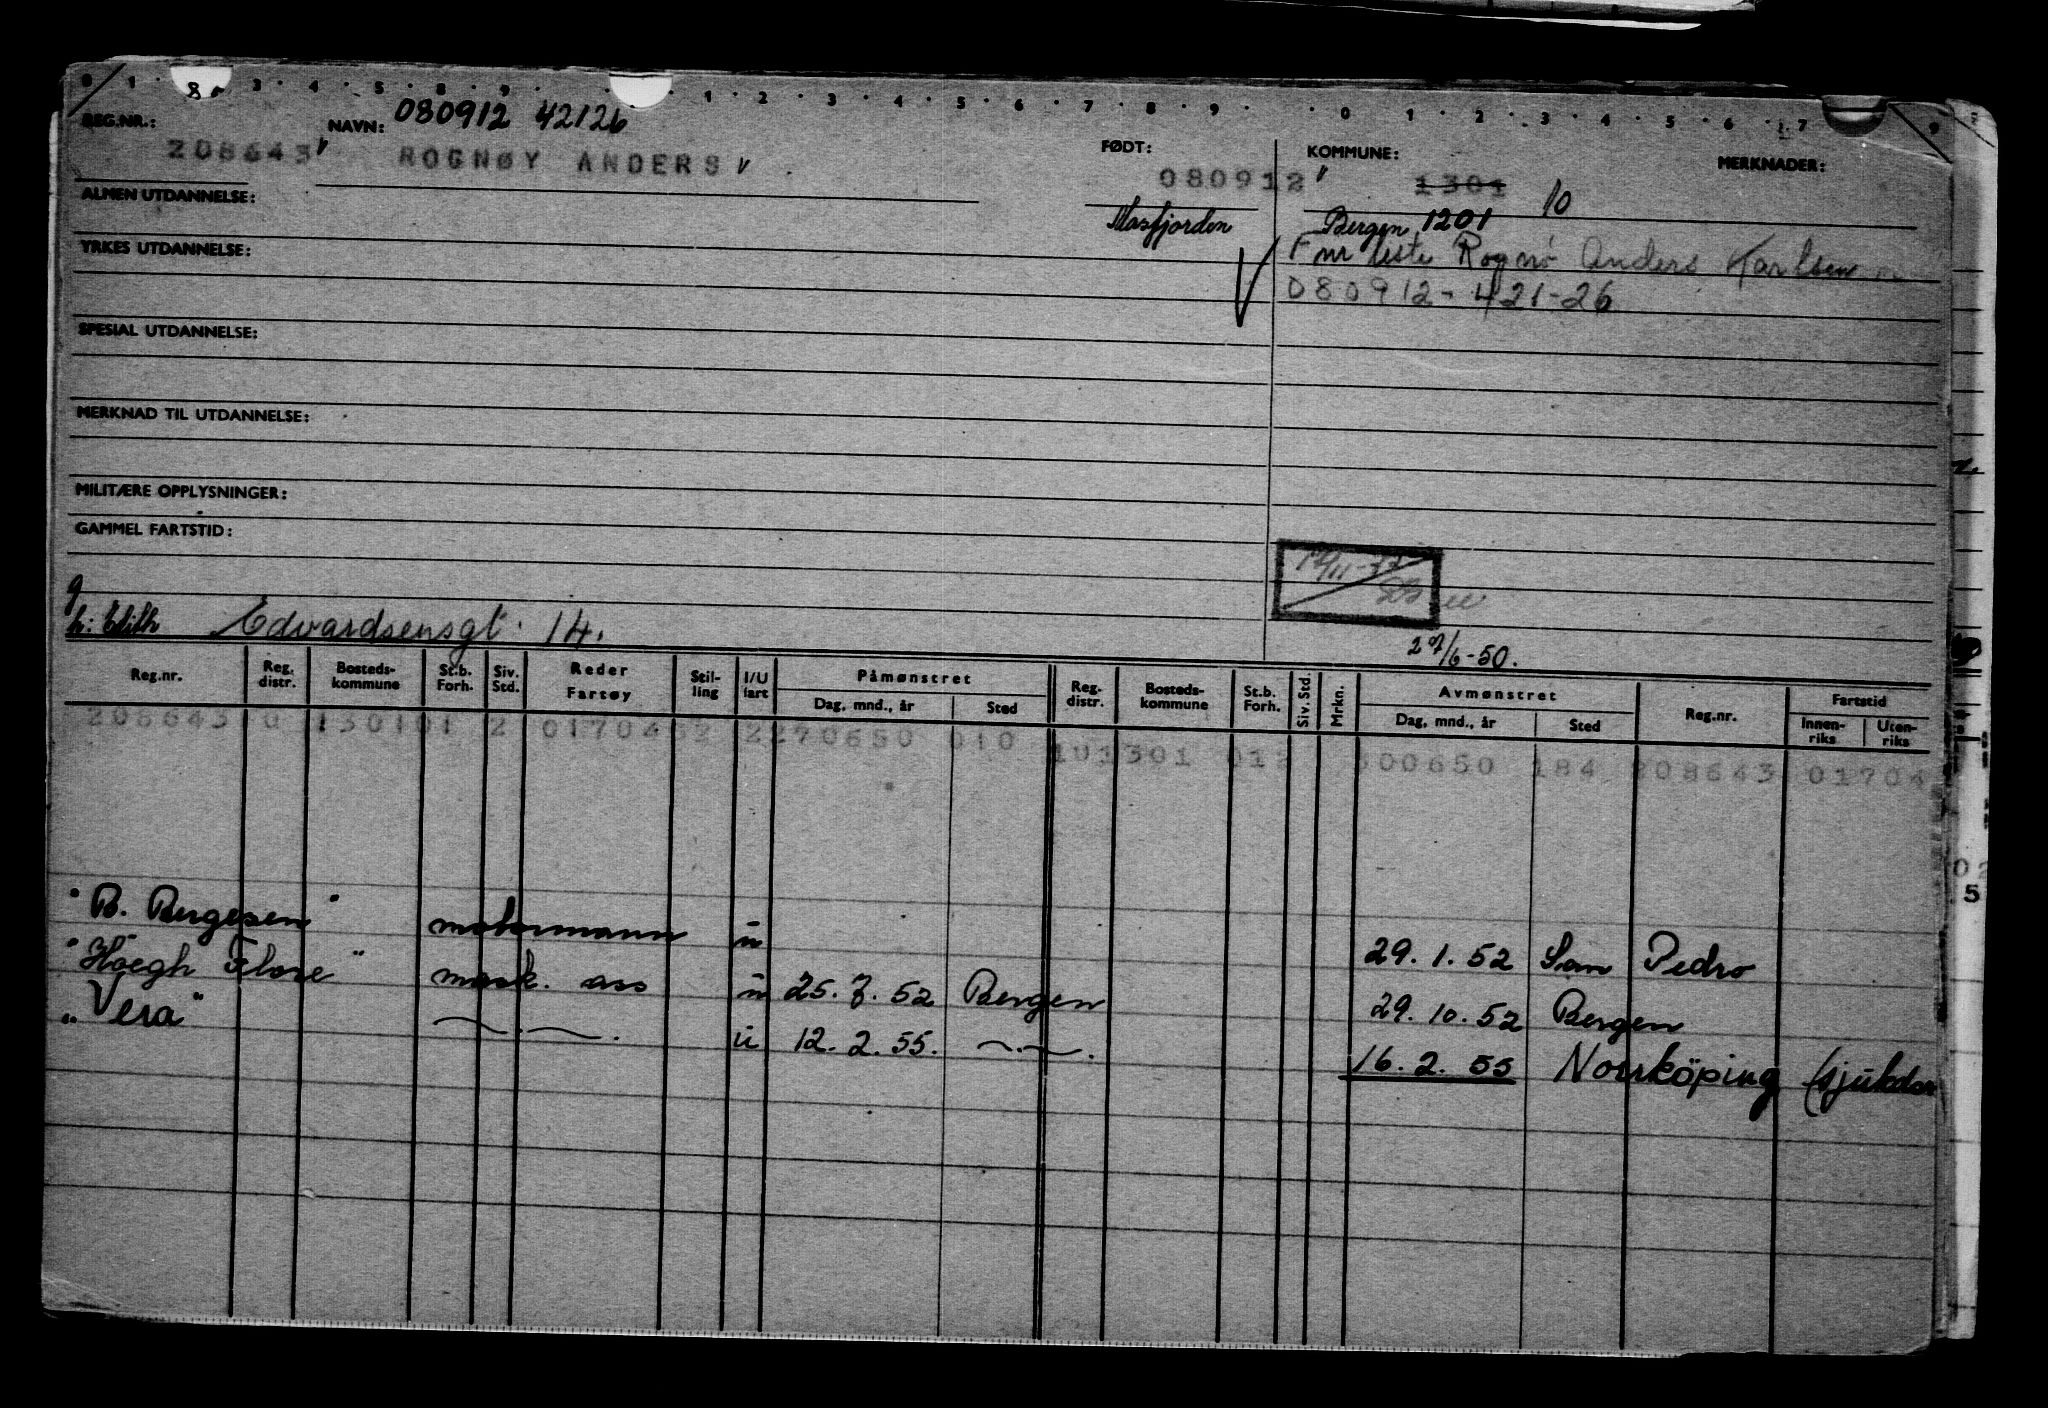 080912 42126
REG.NR.: NAVN: FØDT: KOMMUNE: MERKNADER:
208643 ROGNØY ANDERS 080912 1301 10
ALMEN UTDANNELSE: Masfjorden Bergen 1201
YRKES UTDANNELSE: Fnr liste Rognø Anders Karlsen
080912-421-26
SPESIAL UTDANNELSE:
MERKNAD TIL UTDANNELSE:
MILITÆRE OPPLYSNINGER:
GAMMEL FARTSTID:
g
h: Edith Edvardsensgt. 14.
27/6-50.
Reg.nr. Reg. distr. Bosteds-kommune St.b. Forh. Siv. Std. Reder Fartøy Stil-ling I/U fart Påmønstret Dag, mnd., år Sted Reg. distr. Bosteds-kommune St.b. Forh. Siv. Std. Mrkn. Avmønstret Dag, mnd., år Sted Reg.nr. Fartstid Innen-riks Uten-riks
208643 0 130101 2 01704 2 2270650 010 101301 012 300650 184 208643 01704
"B. Bergesen" motormann u 29.1.52 San Pedro
"Höegh Clare" mask. ass u 25.7.52 Bergen 29.10.52 Bergen
"Vera" —.—. u 12.2.55. —.—. 16.2.55 Norrköping (sjukdom